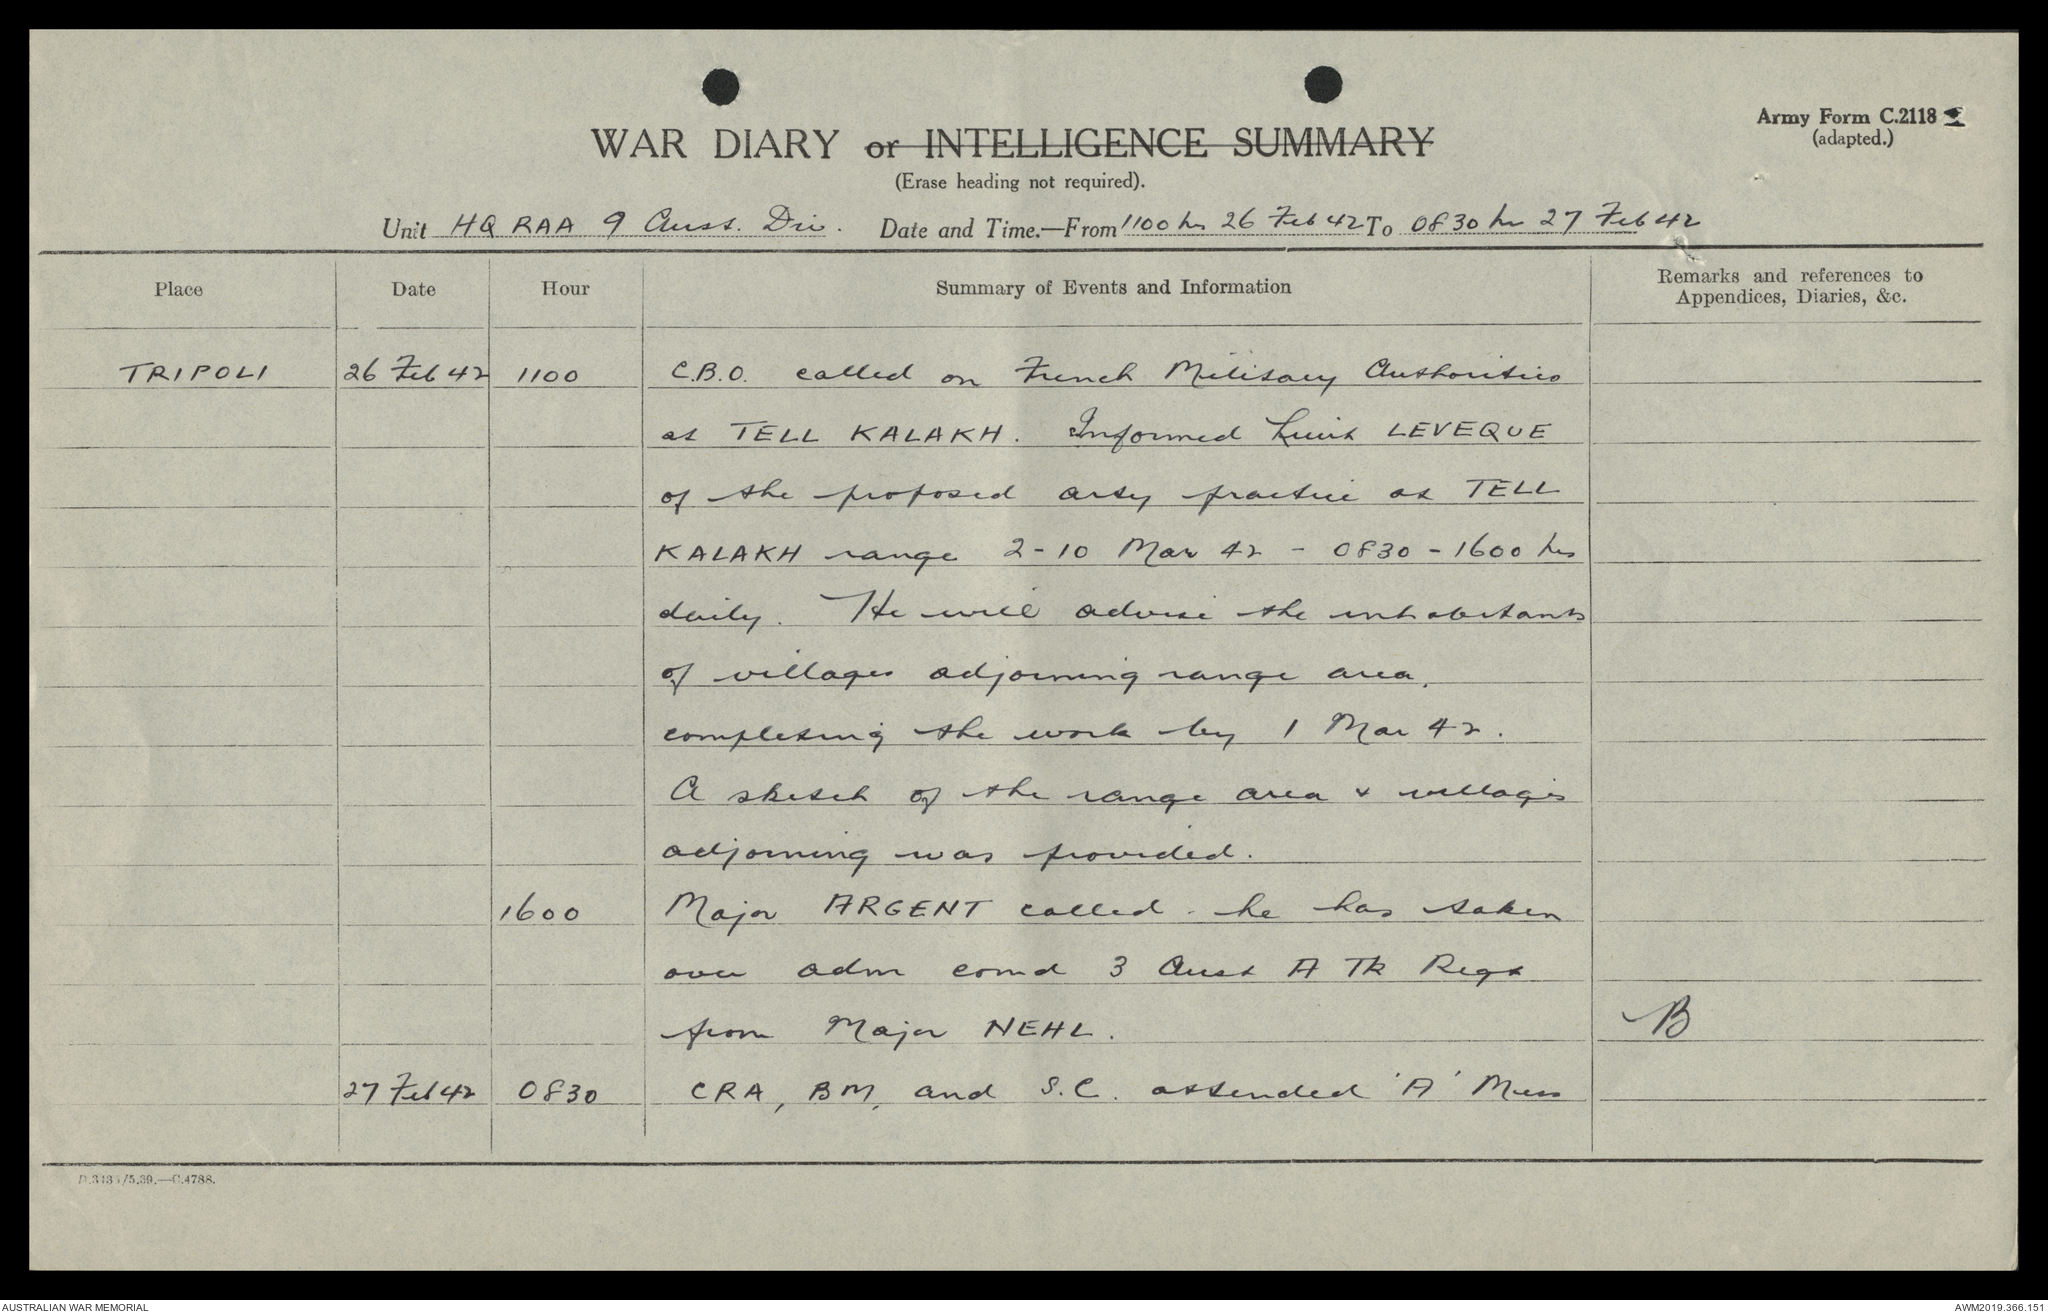 Army Form C.2118
(adapted.)
WAR DIARY or INTELLIGENCE SUMMARY
(Erase heading not required).
Unit HQ RAA 9 Aust. Div. Date and Time.—From 1100 hrs 26 Feb 42 To 0830 hrs 27 Feb 42
Place Date Hour Summary of Events and Information Remarks and references to
Appendices, Diaries, &c.
TRIPOLI 26 Feb 42 1100 C.B.O. called on French Military Authorities
at TELL KALAKH. Informed Lieut LEVEQUE
of the proposed arty practice at TELL
KALAKH range 2-10 Mar 42 - 0830 - 1600 hrs
daily. He will advise the inhabitants
of villages adjoining range area,
completing the work by 1 Mar 42.
A sketch of the range area & villages
adjoining was provided.
1600 Major ARGENT called - he has taken
over adm comd 3 Aust A Tk Regt
from Major NEHL. B
27 Feb 42 0830 CRA, BM, and S.C. attended 'A' Mess
/5.39.—C.4788.
AUSTRALIAN WAR MEMORIAL AWM2019.366.151